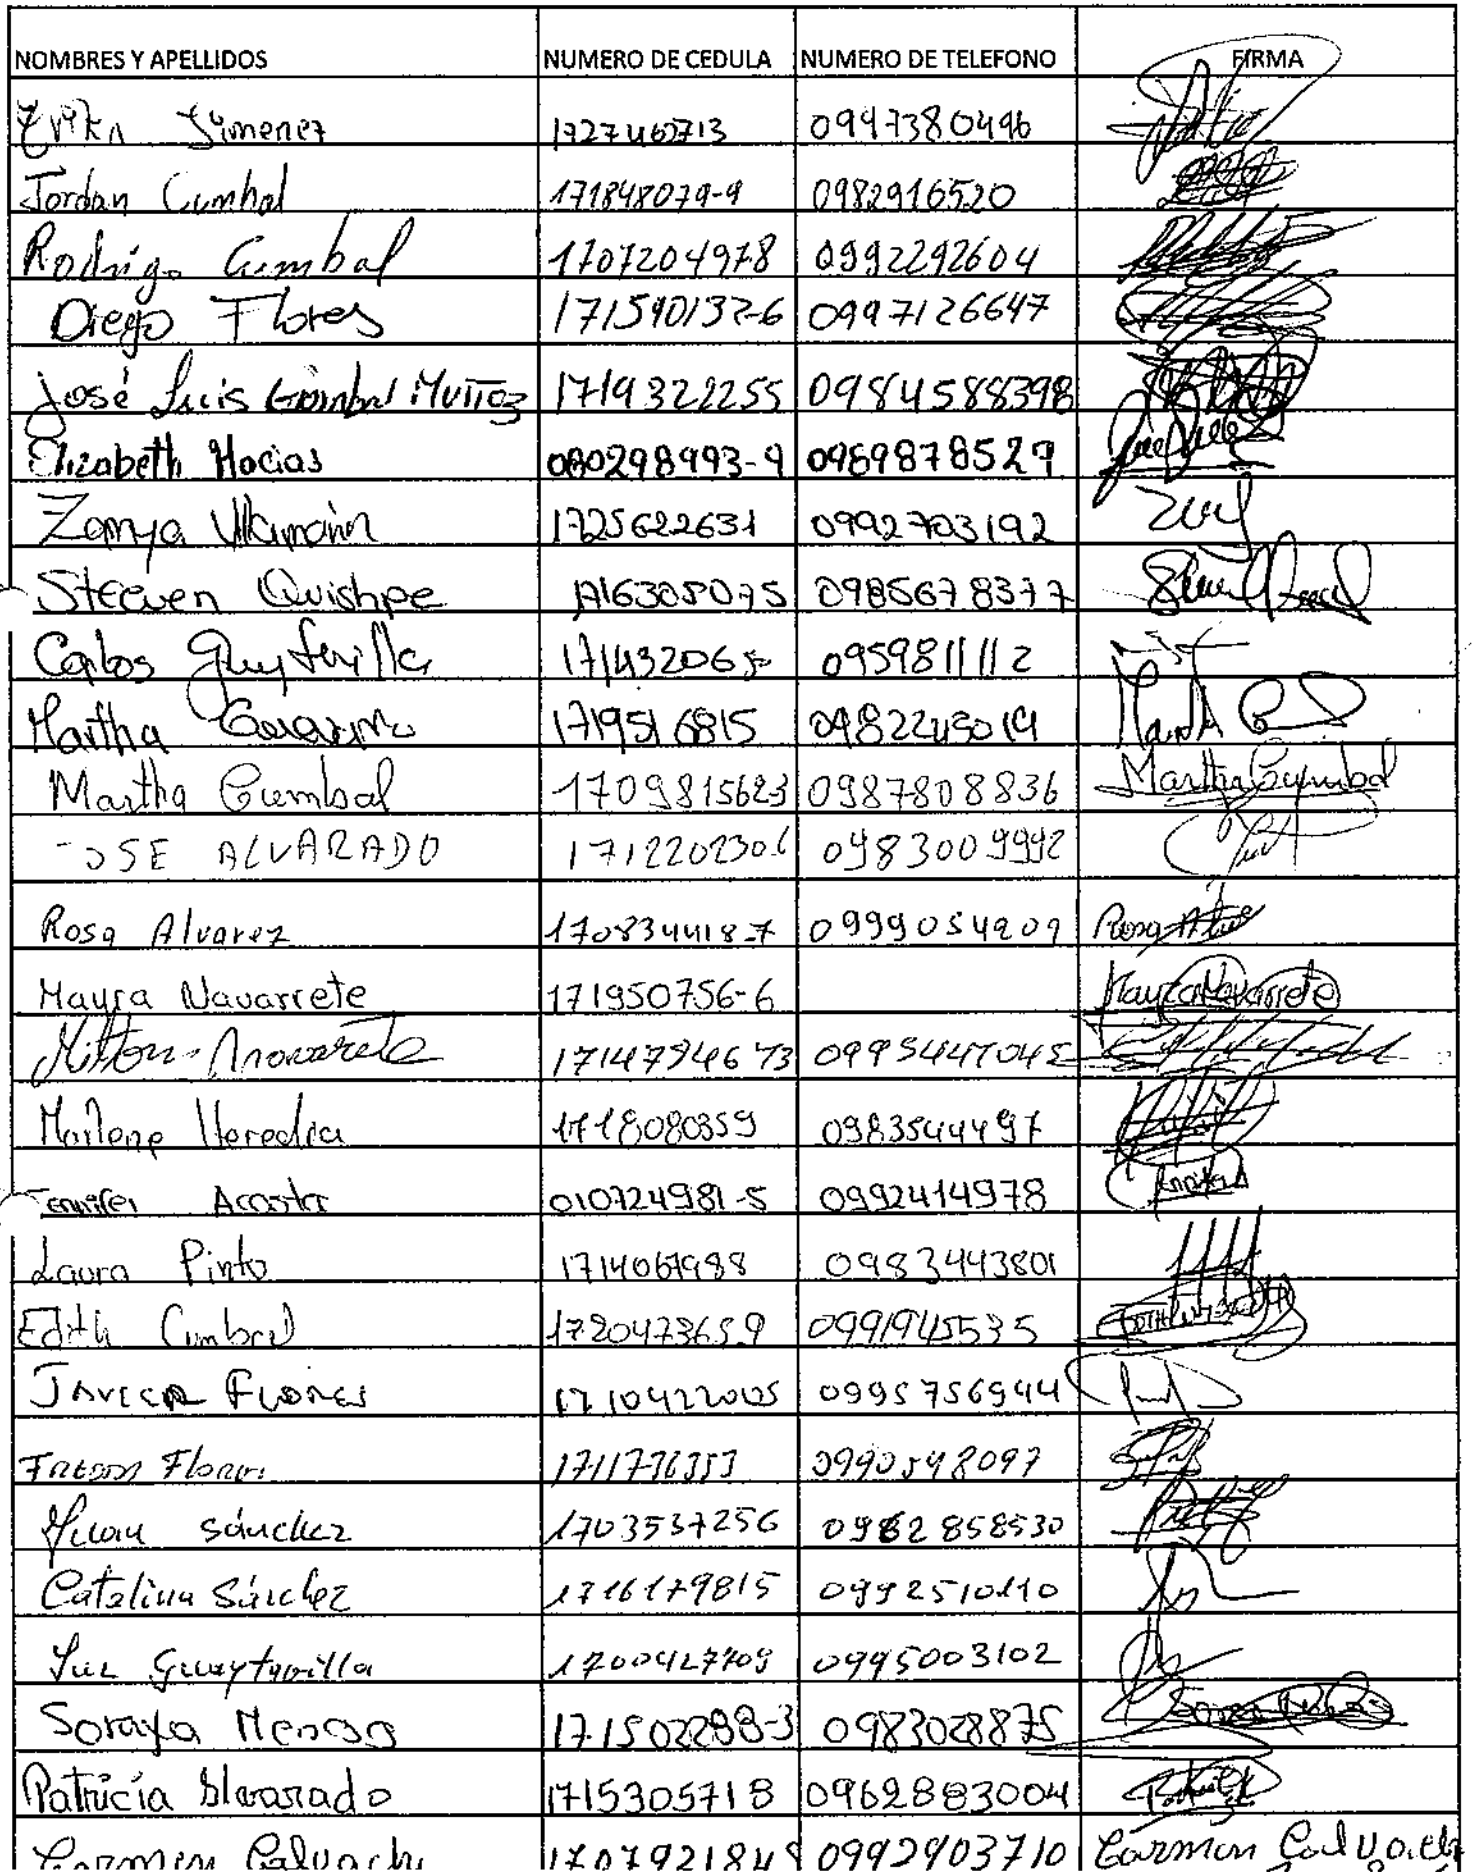 NOMBRES Y APELLIDOS NUMERO DE CEDULA NUMERO DE TELEFONO FIRMA
Erika Jimenez 0997380496
Jordan Cumbal 171848079-9 0982916520
Rodrigo Cumbal 1707204978 0992292604
Diego Flores 171590132-6 0997126647
José Luis Gumbal Muñoz 1719322255 0984588398
Elizabeth Macias 080298993-9 0969878527
Zamya Villamarin 1725622631 0992703192
Steeven Quishpe 1716305075 0985678377
Carlos Guaytarilla 0959811112
Martha 1719516815
Martha Cumbal 1709815623 0987808836 Martha Cumbal
JOSE ALVARADO 1712202306 0983009992
Rosa Alvarez 170834418-7 0999054209 Rosa
Mayra Navarrete 171950756-6 Mayra Navarrete
Milton Navarrete 1714794673 0995447045
Marlene Heredia 1718080359 0983544497
Jennifer Acosta 010724981-5 0992414978
Laura Pinto 0983443801
Edith Cumbal 1720473659 0991945535
Javier Flores 1710422005 0995756944
Flores 0990548097
Sánchez 1703537256 0962858530
Catalina Sánchez 1716179815 0992510110
Luz Guaytarilla 1700427709 0995003102
Soraya 171502288-3 0983028875
Patricia Alvarado 1715305718 0962883004
Carmen Calvachi 1707921848 0992903710 Carmen Calvachi